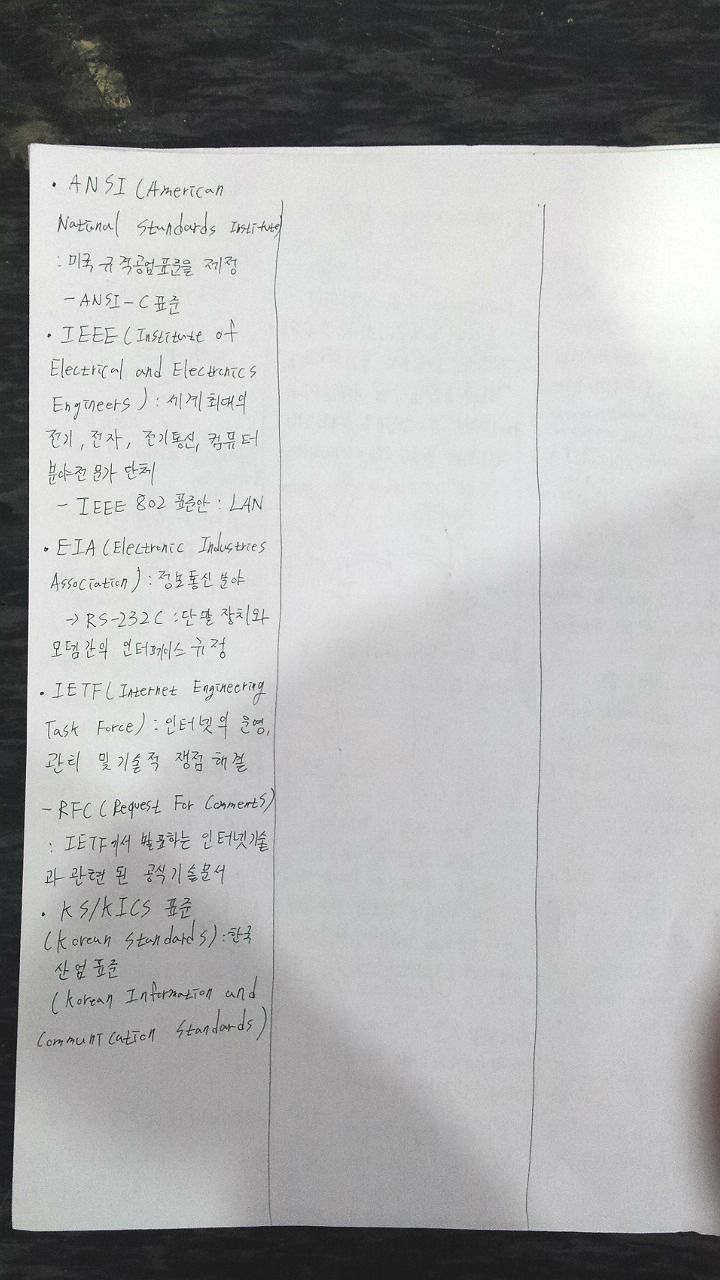 · ANSI (American
National Standards Institute)
: 미국 규격공업표준을 제정
- ANSI-C 표준
· IEEE (Institute of
Electrical and Electronics
Engineers) : 세계 최대의
전기, 전자, 전기통신, 컴퓨터
분야전문가 단체
- IEEE 802 표준안 : LAN
· EIA (Electronic Industries
Association) : 정보통신 분야
→ RS-232C : 단말 장치와
모뎀간의 인터페이스 규정
· IETF (Internet Engineering
Task Force) : 인터넷의 운영,
관리 및 기술적 쟁점 해결
- RFC (Request For Comments)
: IETF에서 발표하는 인터넷기술
과 관련 된 공식기술문서
· KS/KICS 표준
(Korean Standards) : 한국
산업표준
(Korean Information and
Communication Standards)